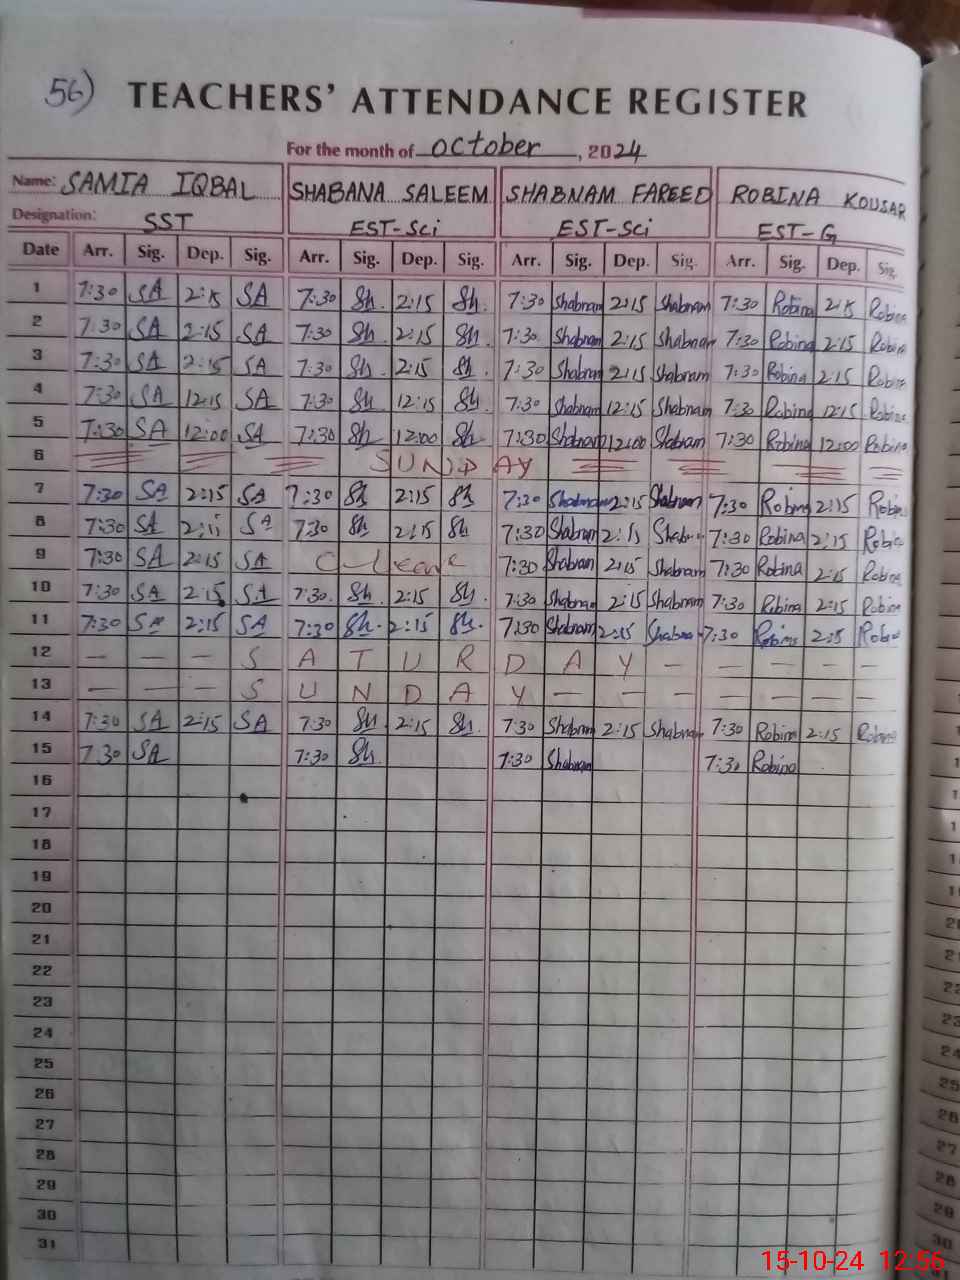 56) TEACHERS' ATTENDANCE REGISTER
For the month of October, 2024
Name: SAMIA IQBAL SHABANA SALEEM SHABNAM FAREED ROBINA KOUSAR
Designation: SST EST-Sci EST-Sci EST-G
Date Arr. Sig. Dep. Sig. Arr. Sig. Dep. Sig. Arr. Sig. Dep. Sig. Arr. Sig. Dep. Sig.
1 7:30 SA 2:15 SA 7:30 Sh. 2:15 Sh. 7:30 Shabnam 2:15 Shabnam 7:30 Robina 2:15 Robina
2 7:30 SA 2:15 SA 7:30 Sh. 2:15 Sh. 7:30 Shabnam 2:15 Shabnam 7:30 Robina 2:15 Robina
3 7:30 SA 2:15 SA 7:30 Sh. 2:15 Sh. 7:30 Shabnam 2:15 Shabnam 7:30 Robina 2:15 Robina
4 7:30 SA 12:15 SA 7:30 Sh 12:15 Sh. 7:30 Shabnam 12:15 Shabnam 7:30 Robina 12:15 Robina
5 7:30 SA 12:00 SA 7:30 Sh 12:00 Sh. 7:30 Shabnam 12:00 Shabnam 7:30 Robina 12:00 Robina
6 SUNDAY
7 7:30 SA 2:15 SA 7:30 Sh 2:15 Sh 7:30 Shabnam 2:15 Shabnam 7:30 Robina 2:15 Robin
8 7:30 SA 2:15 SA 7:30 Sh 2:15 Sh 7:30 Shabnam 2:15 Shabnam 7:30 Robina 2:15 Robin
9 7:30 SA 2:15 SA C-leave 7:30 Shabnam 2:15 Shabnam 7:30 Robina 2:15 Robina
10 7:30 SA 2:15 SA 7:30. Sh. 2:15 Sh. 7:30 Shabnam 2:15 Shabnam 7:30 Robina 2:15 Robina
11 7:30 SA 2:15 SA 7:30 Sh. 2:15 Sh. 7:30 Shabnam 2:15 Shabnam 7:30 Robina 2:15 Robina
12 — — — S A T U R D A Y — — — — —
13 — — — S U N D A Y — — — — — — —
14 7:30 SA 2:15 SA 7:30 Sh 2:15 Sh. 7:30 Shabnam 2:15 Shabnam 7:30 Robina 2:15 Robina
15 7:30 SA 7:30 Sh. 7:30 Shabnam 7:30 Robina
16
17
18
19
20
21
22
23
24
25
26
27
28
29
30
31
15-10-24 12:56